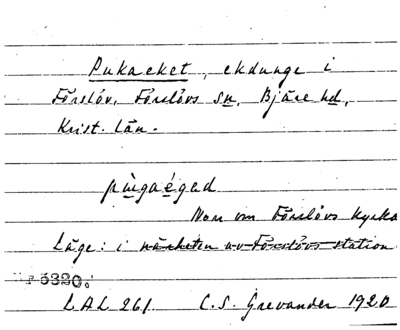 Pukaeket, ekdunge i
Förslöv, Förslövs sn, Bjäre hd,
Krist. län.
pùgaéged
Norr om Förslövs kyrka
Läge: i närheten av Förslövs station
5320.
LAL 261 C.S. Grevander 1920